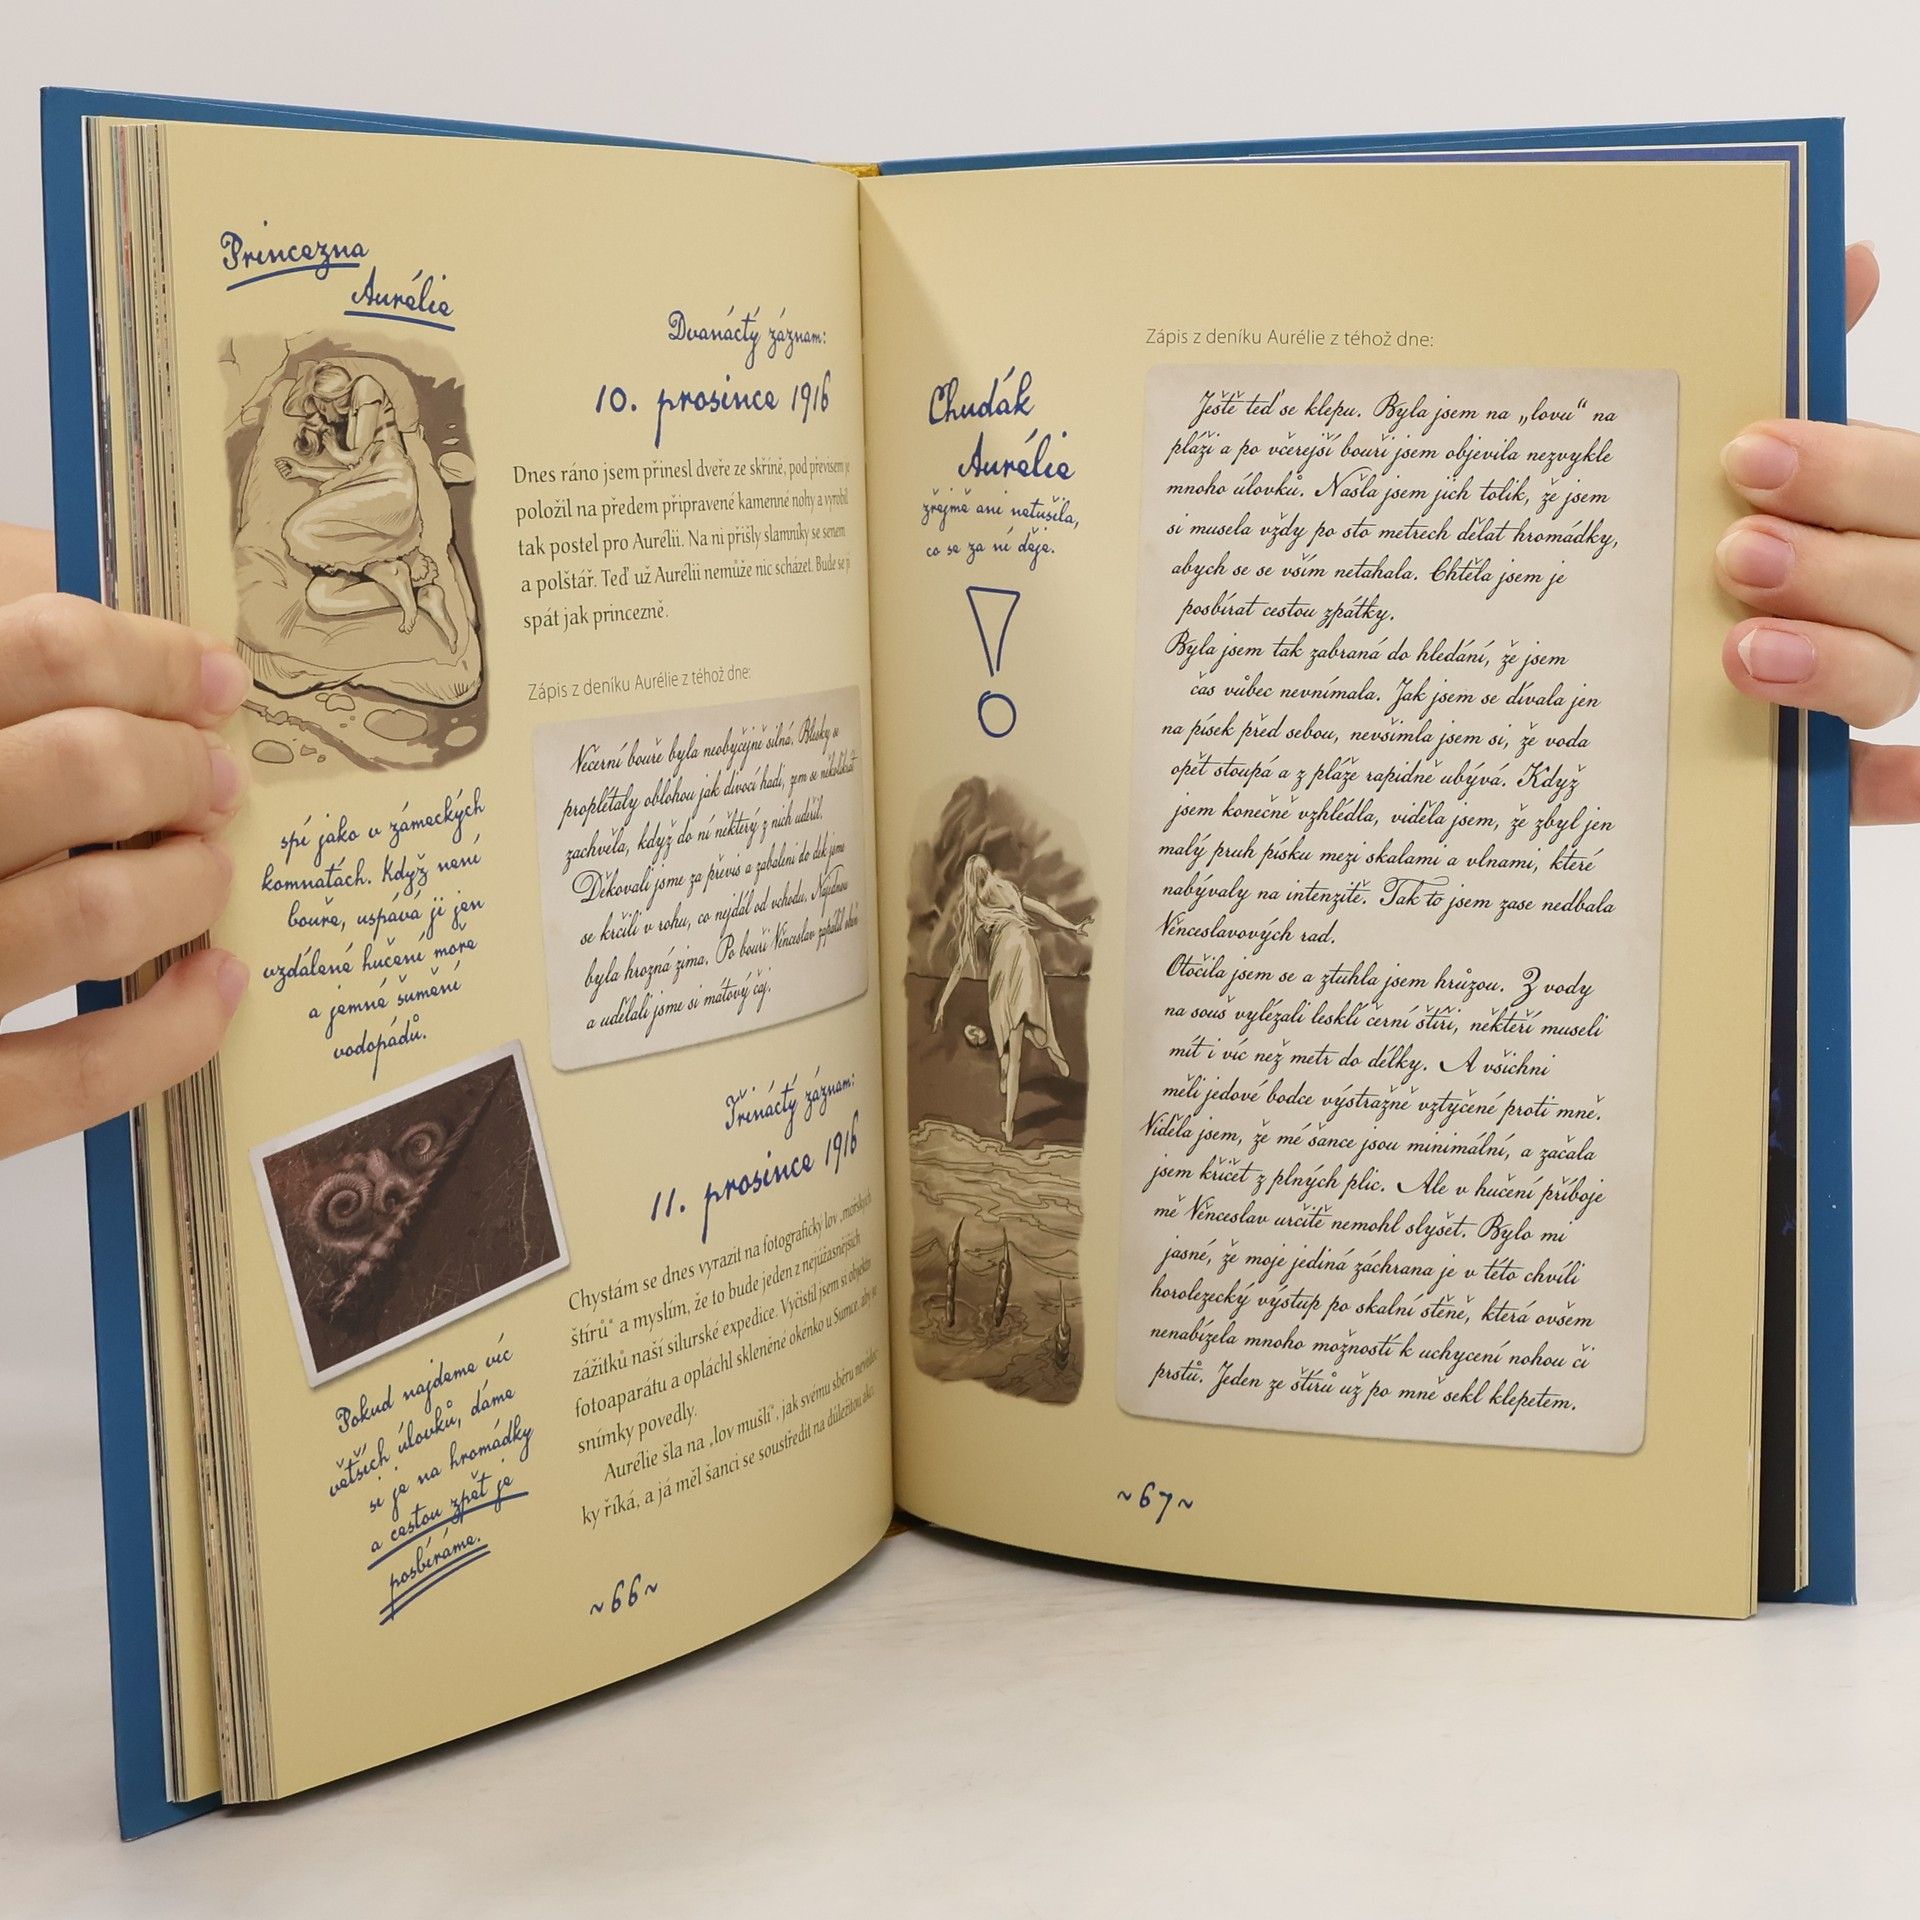 Princezna
Aurélie
spí jako v zámeckých
komnatách. Když není
bouře, uspává ji jen
vzdálené hučení moře
a jemné šumění
vodopádů.
Pokud najdeme víc
větších úlovků, dáme
si je na hromádky
a cestou zpět je
posbíráme.
Dvanáctý záznam:
10. prosince 1916
Dnes ráno jsem přinesl dveře ze skříně, pod převisem je
položil na předem připravené kamenné nohy a vyrobil
tak postel pro Aurélii. Na ni přišly slamníky se senem
a polštář. Teď už Aurélii nemůže nic scházet. Bude se jí
spát jak princezně.
Zápis z deníku Aurélie z téhož dne:
Večerní bouře byla neobyčejně silná. Blesky se
proplétaly oblohou jak divocí hadi, zem se několikrát
zachvěla, když do ní některý z nich udeřil.
Děkovali jsme za převis a zabaleni do dek jsme
se krčili v rohu, co nejdál od vchodu. Najednou
byla hrozná zima. Po bouři Věnceslav zapálil oheň
a udělali jsme si mátový čaj.
Třináctý záznam:
11. prosince 1916
Chystám se dnes vyrazit na fotografický lov „mořských
štírů“ a myslím, že to bude jeden z nejúžasnějších
zážitků naší silurské expedice. Vyčistil jsem si objektiv
fotoaparátu a opláchl skleněné okénko u Sumce, aby se
snímky povedly.
Aurélie šla na „lov mušlí“, jak svému sběru
ky říká, a já měl šanci se soustředit na důležitou
~66~
Chudák
Aurélie
zřejmě ani netušila,
co se za ní děje.
!
Zápis z deníku Aurélie z téhož dne:
Ještě teď se klepu. Byla jsem na „lovu“ na
pláži a po včerejší bouři jsem objevila nezvykle
mnoho úlovků. Našla jsem jich tolik, že jsem
si musela vždy po sto metrech dělat hromádky,
abych se se vším netahala. Chtěla jsem je
posbírat cestou zpátky.
Byla jsem tak zabraná do hledání, že jsem
čas vůbec nevnímala. Jak jsem se dívala jen
na písek před sebou, nevšimla jsem si, že voda
opět stoupá a z pláže rapidně ubývá. Když
jsem konečně vzhlédla, viděla jsem, že zbyl jen
malý pruh písku mezi skalami a vlnami, které
nabývaly na intenzitě. Tak to jsem zase nedbala
Věnceslavových rad.
Otočila jsem se a ztuhla jsem hrůzou. Z vody
na souš vylézali lesklí černí štíři, někteří museli
mít i víc než metr do délky. A všichni
měli jedové bodce výstražně vztyčené proti mně.
Viděla jsem, že mé šance jsou minimální, a začala
jsem křičet z plných plic. Ale v hučení příboje
mě Věnceslav určitě nemohl slyšet. Bylo mi
jasné, že moje jediná záchrana je v této chvíli
horolezecký výstup po skalní stěně, která ovšem
nenabízela mnoho možností k uchycení nohou či
prstů. Jeden ze štírů už po mně sekl klepetem.
~67~